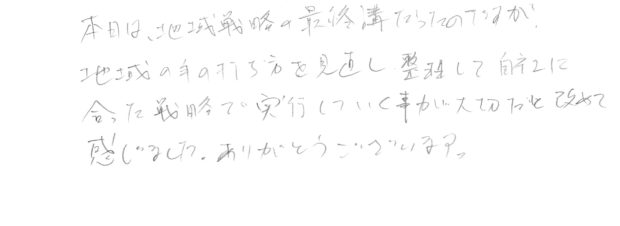 本日は、地域戦略の最終講だったのですが、
地域の手の打ち方を見直し整理して自社に
合った戦略で実行していく事が大切だと改めて
感じました。ありがとうございます。